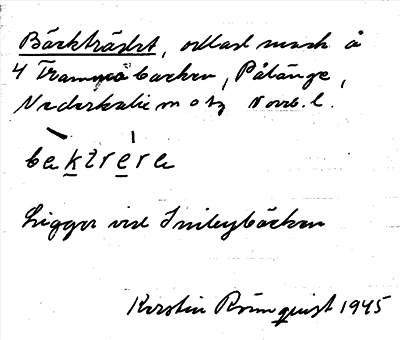 Bäckträsket, odlad mark å
4 backen, Pålänge,
Nederkalix m o tg Norrb. l.
bektrere
Ligger vid bäcken
Kerstin Rönnquist 1945